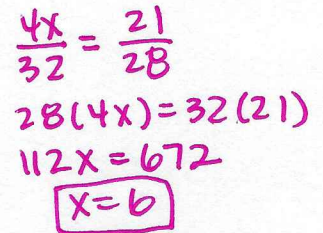 4x/32 = 21/28
28(4x)=32(21)
112x=672
x=6